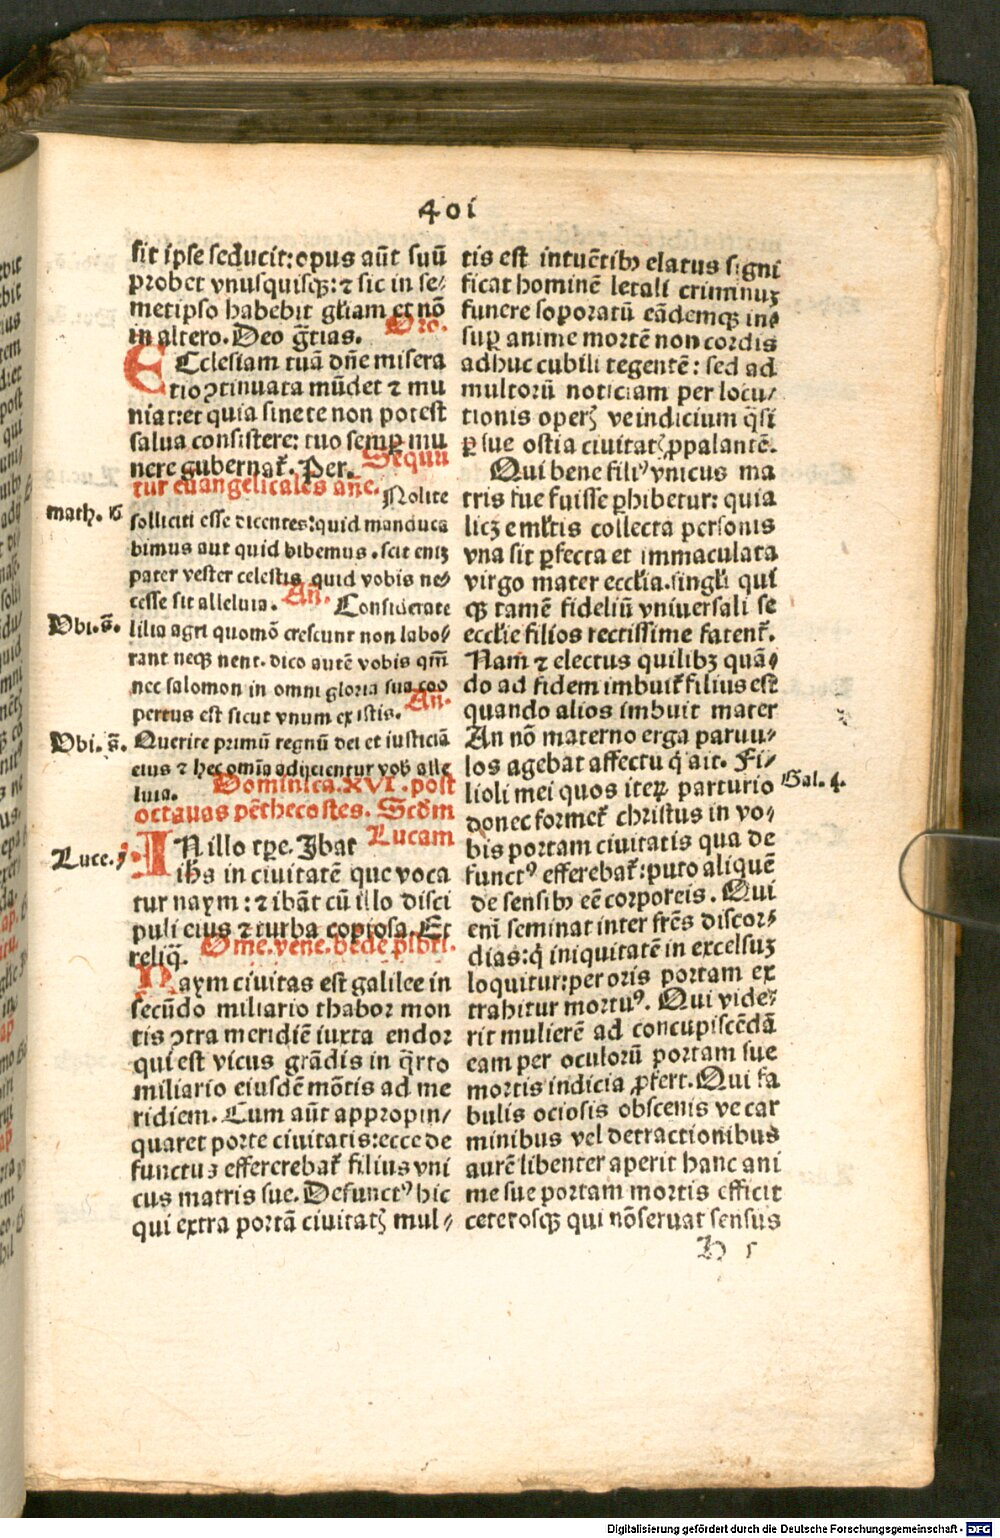 401
sit ipse seducit: opus aūt suū
probet vnusquisqꝫ: ⁊ sic in se-
metipso habebit gl̄iam et nō
in altero. Deo gr̄tias. Oro.
ECclesiam tuā dn̄e misera
tio ꝯtinuata mūdet ⁊ mu
niat: et quia sine te non potest
salua consistere: tuo semꝑ mu
nere gubernat᷑. Per. Sequū
tur euangelicales an̄e. Nolite
math. 6
solliciti esse dicentes: quid manduca
bimus aut quid bibemus. scit eniꝫ
pater vester celestis quid vobis ne-
cesse sit alleluia. An̄. Considerate
Vbi. s̄.
lilia agri quomō crescunt non labo-
rant neqꝫ nent. dico autē vobis qm̄
nec salomon in omni gloria sua coo
pertus est sicut vnum ex istis. An̄.
Vbi. s̄.
Querite primū regnū dei et iusticiā
eius ⁊ hec om̄ia adijcientur vob̄ alle
luia. Dominica. XVI. post
octauas pēthecostes. Scd̄m
Lucam
Luce. 7
IN illo tꝑe. Ibat
ih̄s in ciuitatē que voca
tur naym: ⁊ ibāt cū illo disci
puli eius ⁊ turba copiosa. Et
reliq̄. Ome. vene. bede pl̄bri.
Naym ciuitas est galilee in
secūdo miliario thabor mon
tis ꝯtra meridiē iuxta endor
qui est vicus grādis in q̄rto
miliario eiusdē mōtis ad me
ridiem. Cum aūt appropin-
quaret porte ciuitatis: ecce de
functus efferebat᷑ filius vni
cus matris sue. Defunctꝰ hic
qui extra portā ciuitatꝭ mul-
tis est intuētibꝫ elatus signi
ficat hominē letali criminuꝫ
funere soporatū eādemqꝫ in-
suꝑ anime mortē non cordis
adhuc cubili tegentē: sed ad
multorū noticiam per locu-
tionis operꝭ ve indicium q̄si
ꝑ sue ostia ciuitatꝭ ꝓpalantē.
Qui bene filiꝰ vnicus ma
tris sue fuisse ꝑhibetur: quia
licꝫ e ml̄tis collecta personis
vna sit ꝑfecta et immaculata
virgo mater eccl̄ia. singl̄i qui
qꝫ tamē fideliū vniuersali se
eccl̄ie filios rectissime fatent᷑.
Nam ⁊ electus quilibꝫ quā-
do ad fidem imbuit᷑ filius est
quando alios imbuit mater
An nō materno erga paruu-
los agebat affectu q̇ ait. Fi-
Gal. 4.
lioli mei quos iteꝝ parturio
donec formet᷑ christus in vo-
bis portam ciuitatis qua de
functꝰ efferebat᷑: puto aliquē
de sensibꝫ eē corporeis. Qui
eni seminat inter fr̄es discor-
dias: q̇ iniquitatē in excelsuꝫ
loquitur: per oris portam ex
trahitur mortuꝰ. Qui vide-
rit mulierē ad concupiscēdā
eam per oculorū portam sue
mortis indicia ꝓfert. Qui fa
bulis ociosis obscenis ve car
minibus vel detractionibus
aurē libenter aperit hanc ani
me sue portam mortis efficit
ceterosqꝫ qui nō seruat sensus